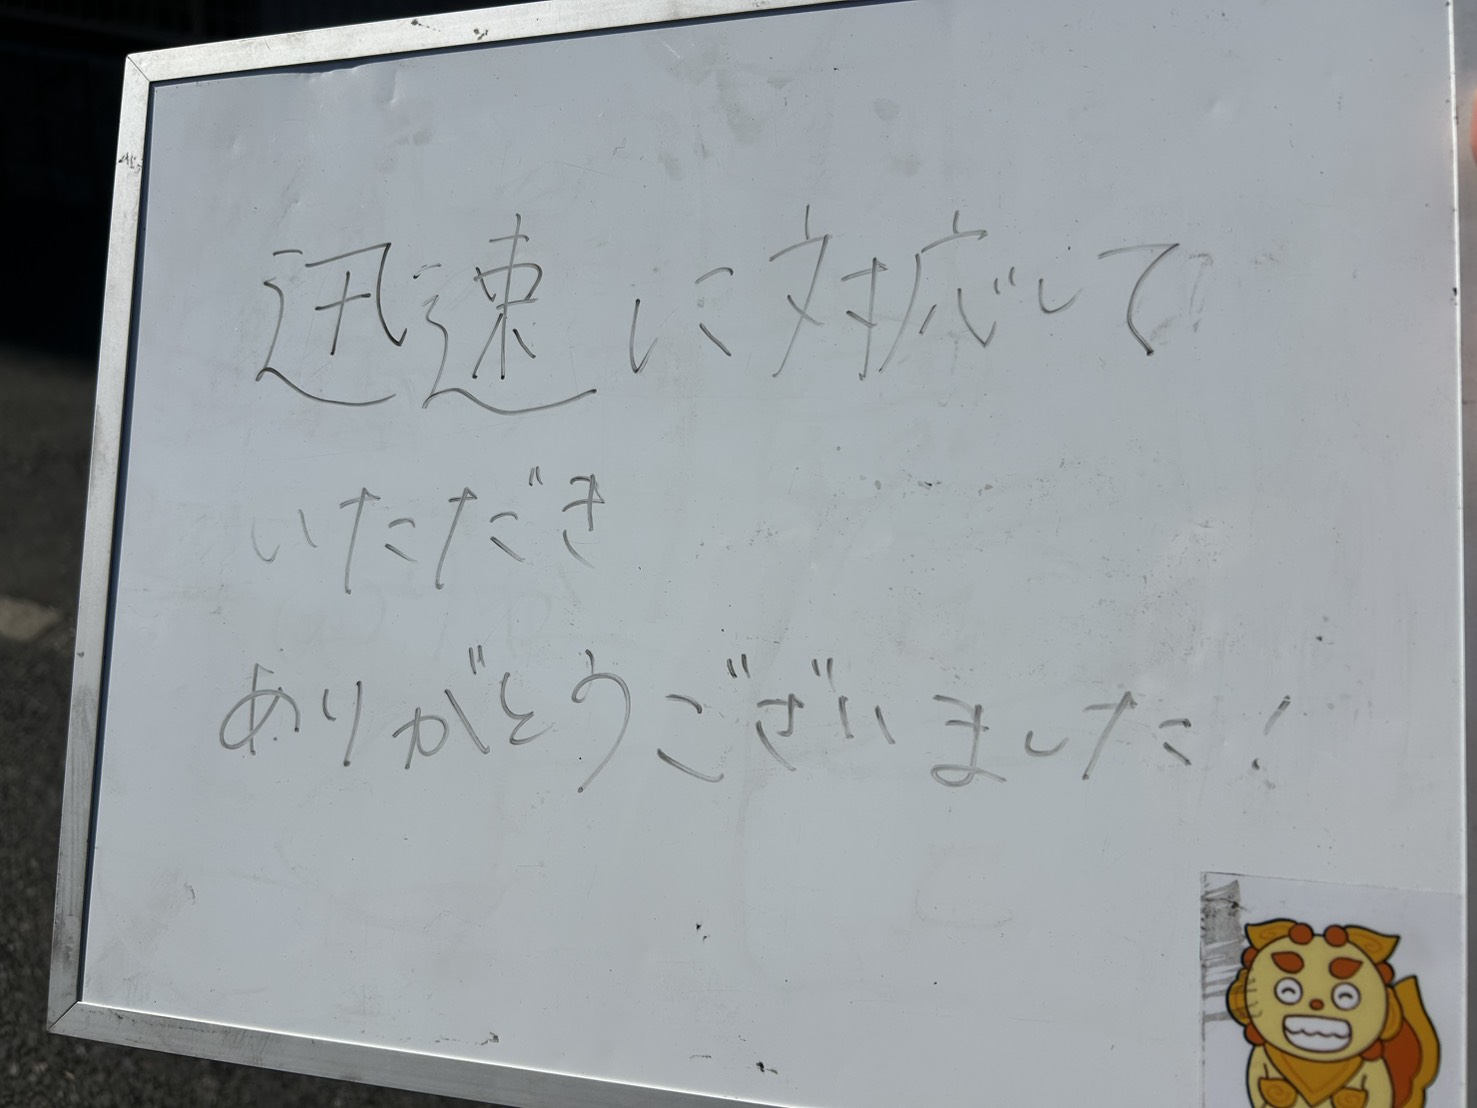 迅速に対応して
いただき
ありがとうございました!